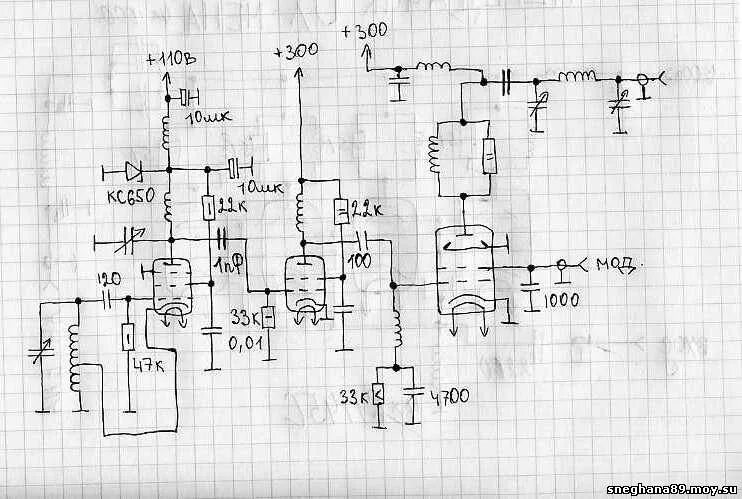 +110В
+300
+300
10мк
КС650
10мк
22к
22к
1пФ
120
100
МОД.
1000
33к
0,01
47к
33к
4700
sneghana89.moy.su